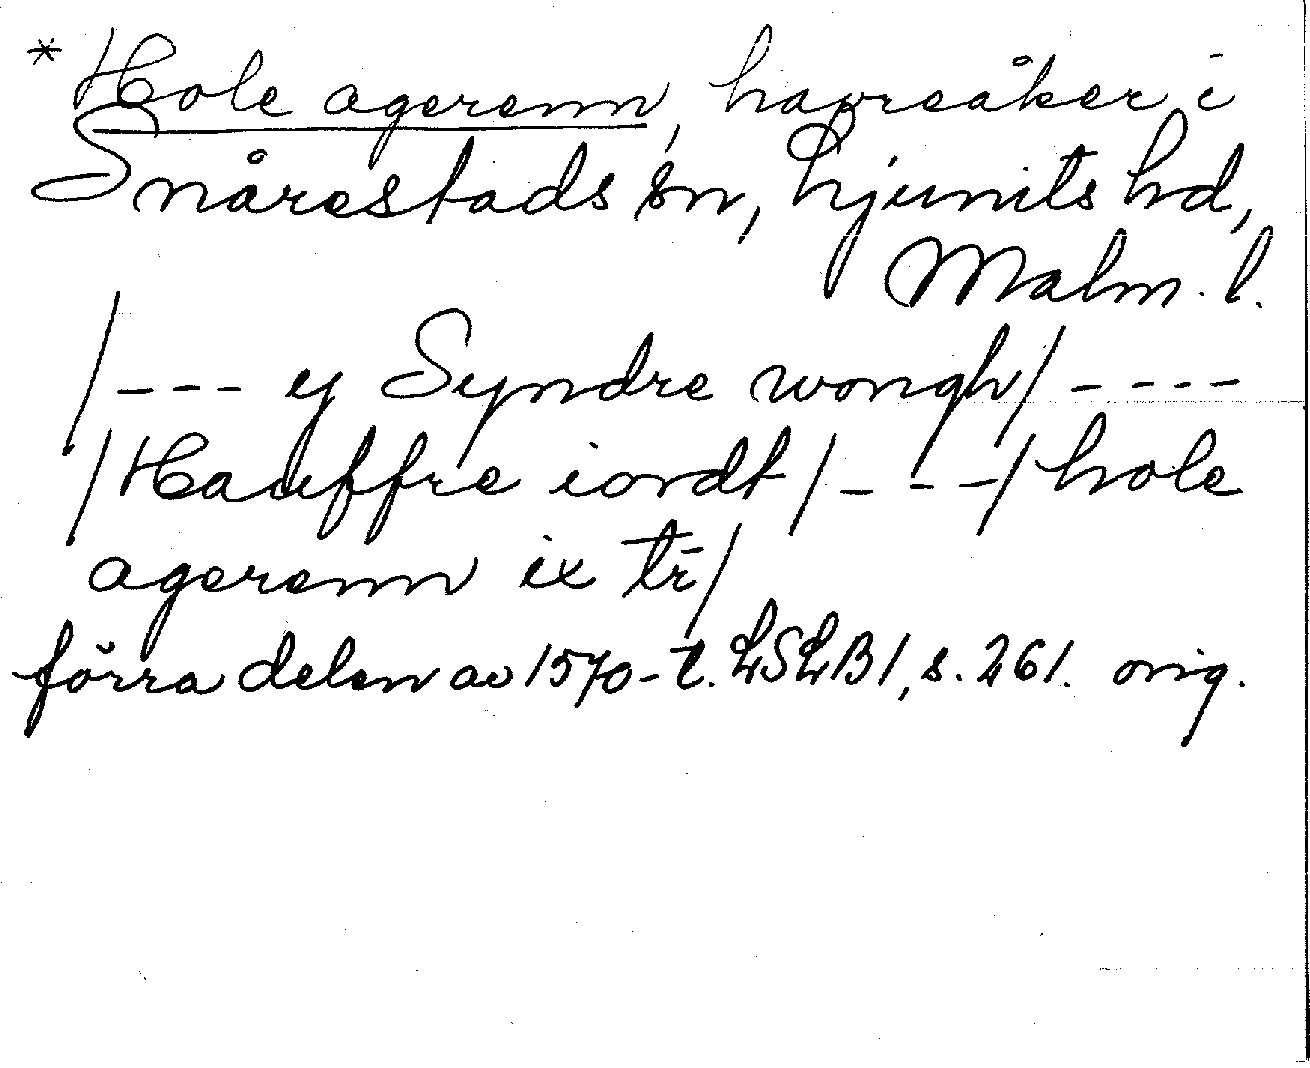 * Hole agerenn, havreåker i
Snårestads sn, Ljunits hd,
Malm. l.
/--- y Syndre wongh/ ----
/Hauffre iordt/ ---/hole
agerenn ix tr̄/
förra delen av 1570-t. LSLB1, s. 261. orig.